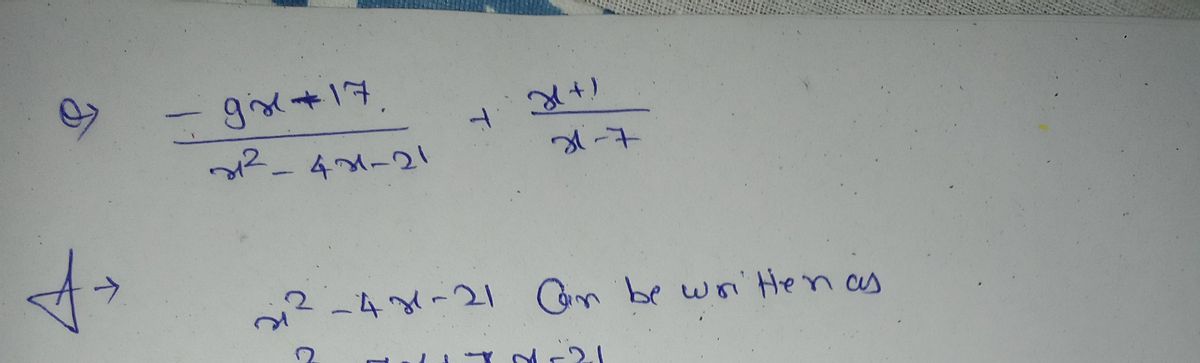 Q> (-9x+17)/(x² - 4x-21) + (x+1)/(x-7)
A→ x² -4x-21 Can be written as